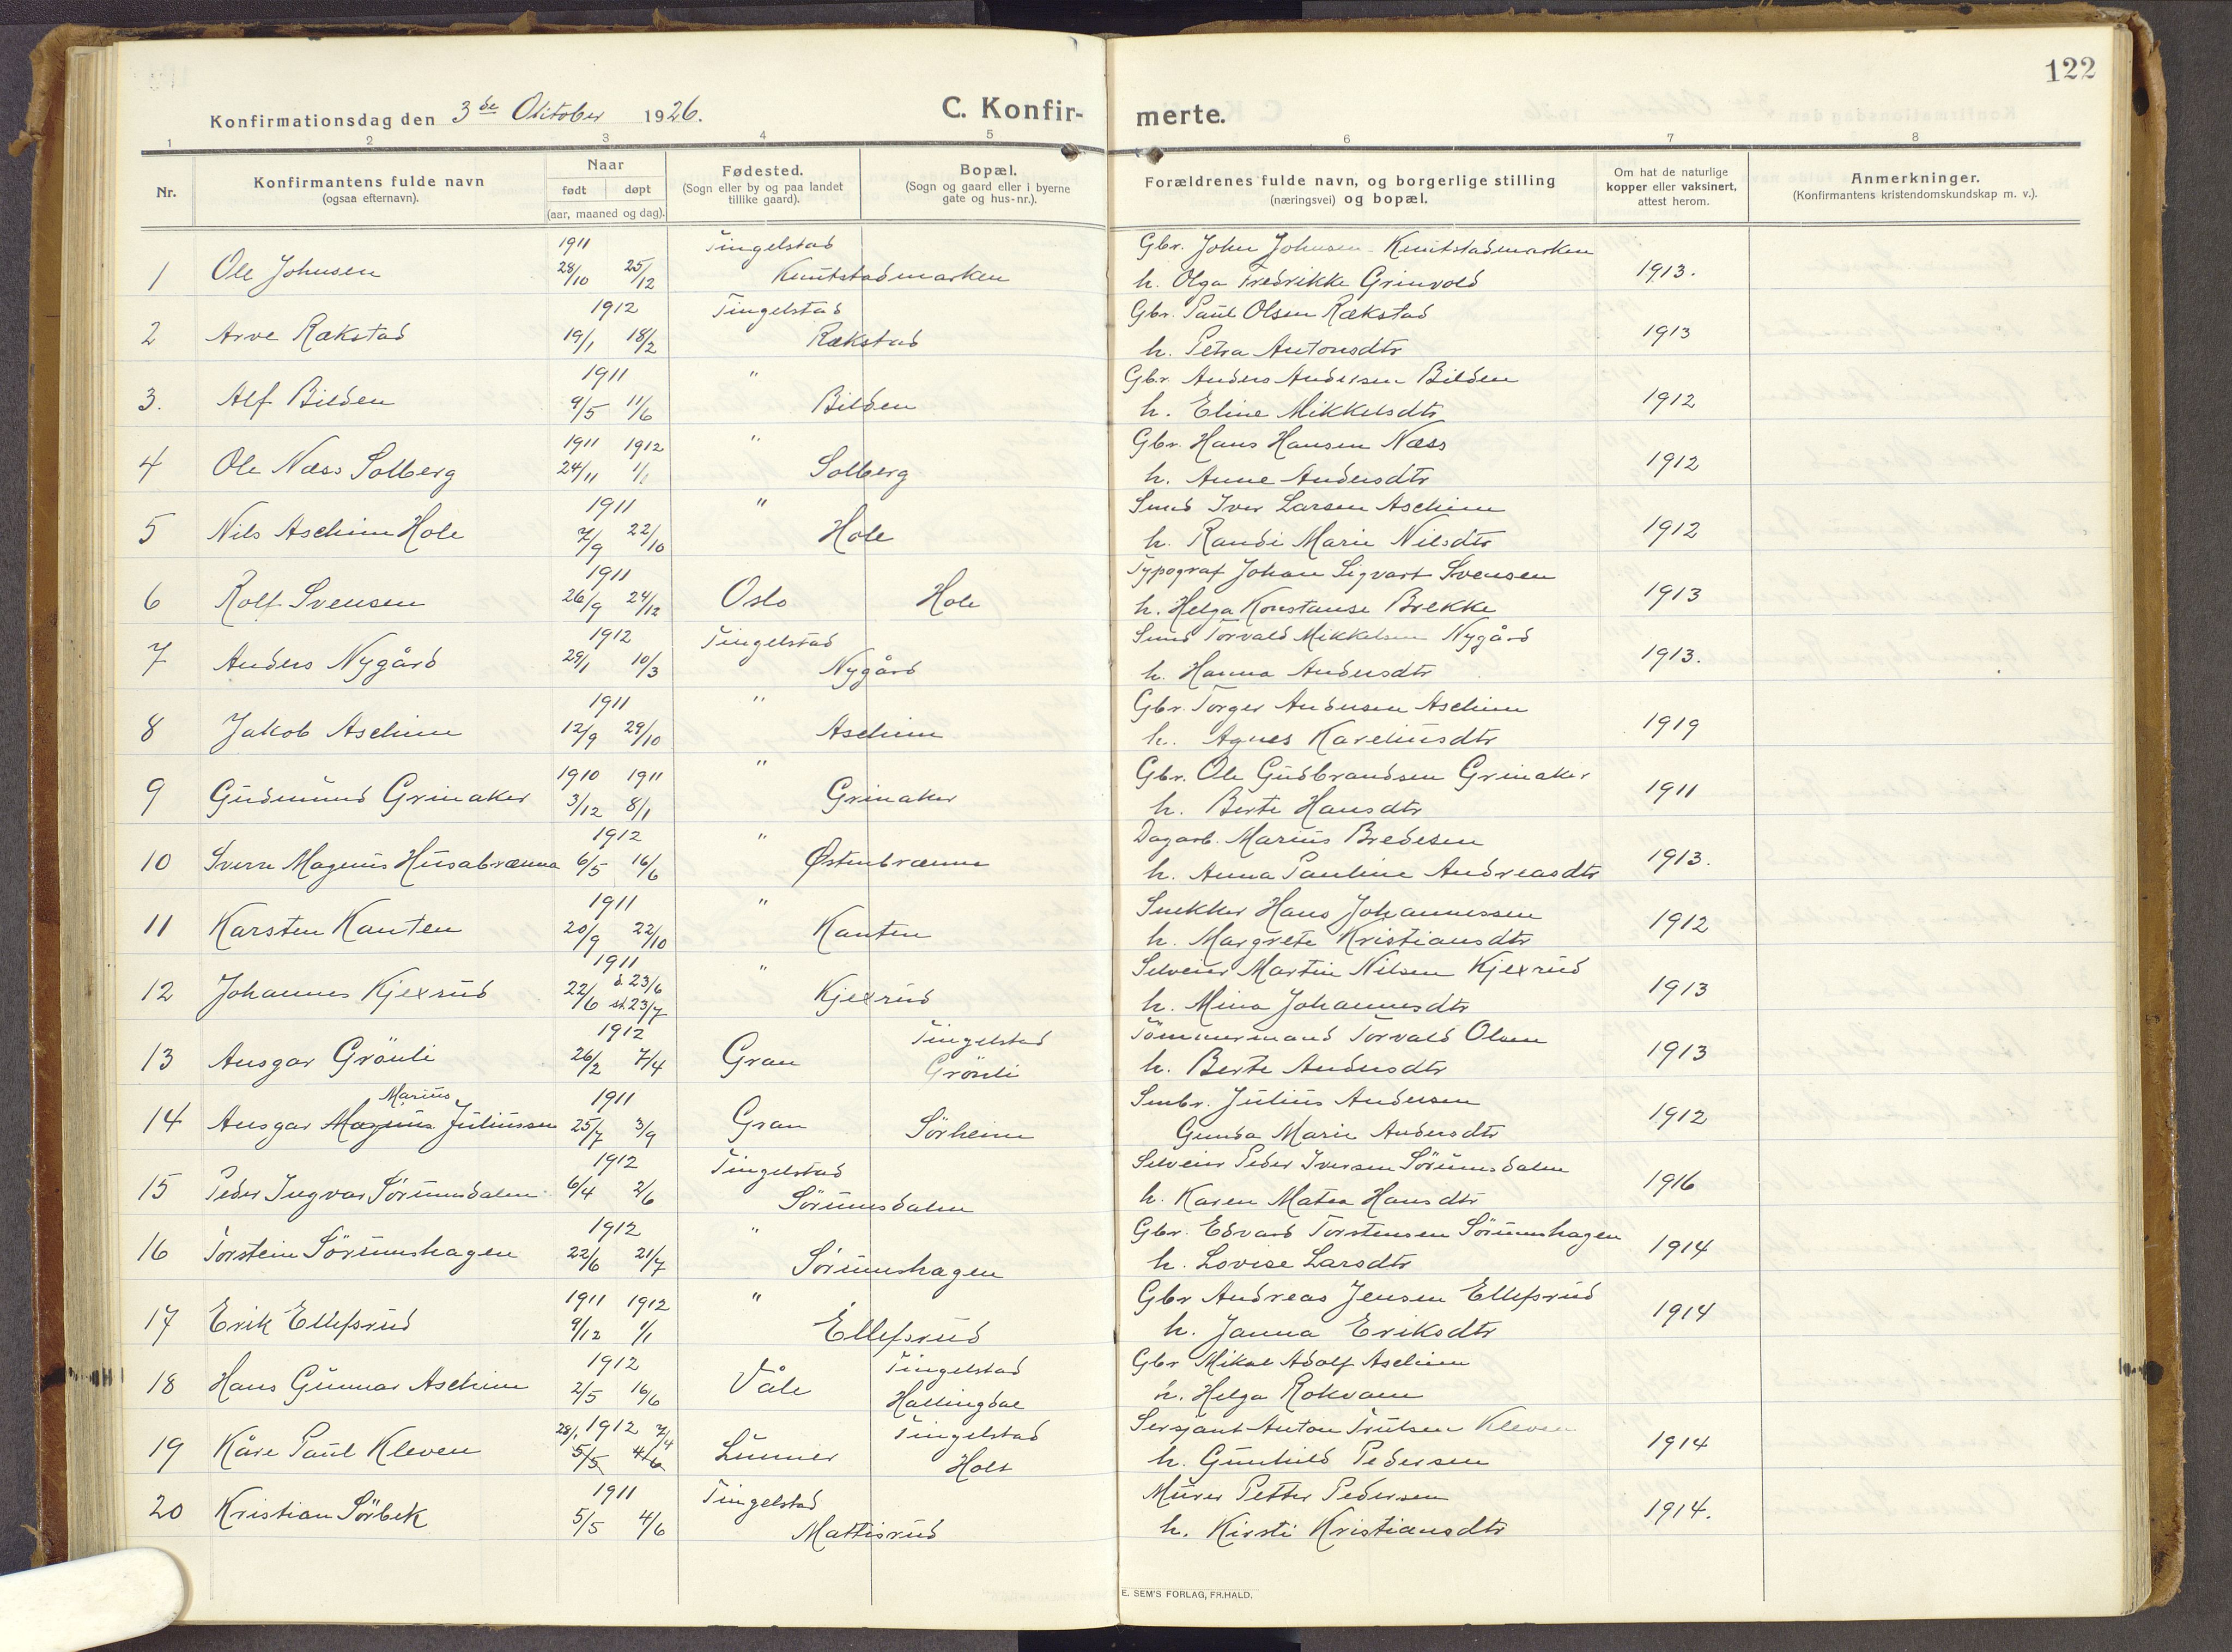 122
Konfirmationsdag den 3de Oktober 1926.
C. Konfir-
merte.
1 2 3 4 5 6 7 8
Nr.
Konfirmantens fulde navn
(ogsaa efternavn).
Naar
født døpt
(aar, maaned og dag).
Fødested.
(Sogn eller by og paa landet
tillike gaard).
Bopæl.
(Sogn og gaard eller i byerne
gate og hus-nr.).
Forældrenes fulde navn, og borgerlige stilling
(næringsvei) og bopæl.
Om hat de naturlige
kopper eller vaksinert,
attest herom.
Anmerkninger.
(Konfirmantens kristendomskundskap m. v.).
1911 Tingelstad Gbr. John Johnsen Knutstadmarken
1 Ole Johnsen 28/10 25/12 Knutstadmarken h. Olga Fredrikke Grinvold 1913.
1912 Tingelstad Gbr. Paul Olsen Rækstad
2 Arve Rækstad 19/1 18/2 Rækstad h. Petra Antonsdtr 1913
1911 " Gbr. Anders Andersen Bilden
3. Alf Bilden 9/5 11/6 Bilden h. Eline Mikkelsdtr 1912
1911 1912 " Gbr. Hans Hansen Næss
4 Ole Næss Solberg 24/11 1/1 Solberg h. Anne Andersdtr 1912
1911 " Smed Iver Larsen Aschim
5 Nils Aschim Hole 7/9 22/10 Hole h. Randi Marie Nilsdtr 1912
1911 Typograf Johan Sigvart Svensen
6 Rolf Svensen 26/9 24/12 Oslo Hole h. Helga Konstanse Brekke 1913
1912 Tingelstad Smed Torvald Mikkelsen Nygård
7 Anders Nygård 29/1 10/3 Nygård h. Hanna Andersdtr 1913.
1911 " Gbr. Torger Andersen Aschim
8 Jakob Aschim 12/9 29/10 Aschim h. Agnes Kareliusdtr 1919
1910 1911 " Gbr. Ole Gudbrandsen Grinaker
9 Gudmund Grinaker 3/12 8/1 Grinaker h. Berte Hansdtr 1911
1912 " Dagarb. Marius Bredesen
10 Sverre Magnus Husabrænna 6/5 16/6 Østenbrænna h. Anna Pauline Andreasdtr 1913.
1911 " Snekker Hans Johannessen
11 Karsten Kanten 20/9 22/10 Kanten h. Margrete Kristiansdtr 1912
1911 " Selveier Martin Nilsen Kjexrud
12 Johannes Kjexrud 22/6 d. 23/6 st. 23/7 Kjexrud h. Mina Johannesdtr 1913
1912 Tingelstad Tömmermand Torvald Olsen
13 Ansgar Grönli 26/2 7/4 Gran Grönli h. Berte Andersdtr 1913
Marius 1911 Smbr. Julius Andersen
14 Ansgar Magnus Juliussen 25/7 3/9 Gran Sörheim Gunda Marie Andersdtr 1912
1912 Tingelstad Selveier Peder Iversen Sörumsdalen
15 Peder Ingvar Sörumsdalen 6/4 2/6 Sörumsdalen h. Karen Matea Hansdtr 1916
1912 " Gbr. Edvard Torstensen Sörumshagen
16 Torstein Sörumshagen 22/6 21/7 Sörumshagen h. Lovise Larsdtr 1914
1911 1912 " Gbr Andreas Jensen Ellefsrud
17 Erik Ellefsrud 9/12 1/1 Ellefsrud h. Janna Eriksdtr 1914
1912 Tingelstad Gbr Mikal Adolf Aschim
18 Hans Gunnar Aschim 2/5 16/6 Våle Hallingdal h. Helga Rokvam
28/1 1912 7/4 Tingelstad Sersjant Anton Trulsen Kleven
19 Kåre Paul Kleven 5/5 4/6 Lunner Holt h. Gunhild Pedersen 1914
1911 Tingelstad Murer Petter Pedersen
20 Kristian Sörbek 5/5 4/6 Mattisrud h. Kirsti Kristiansdtr 1914.
E. SEM'S FORLAG, FR.HALD.